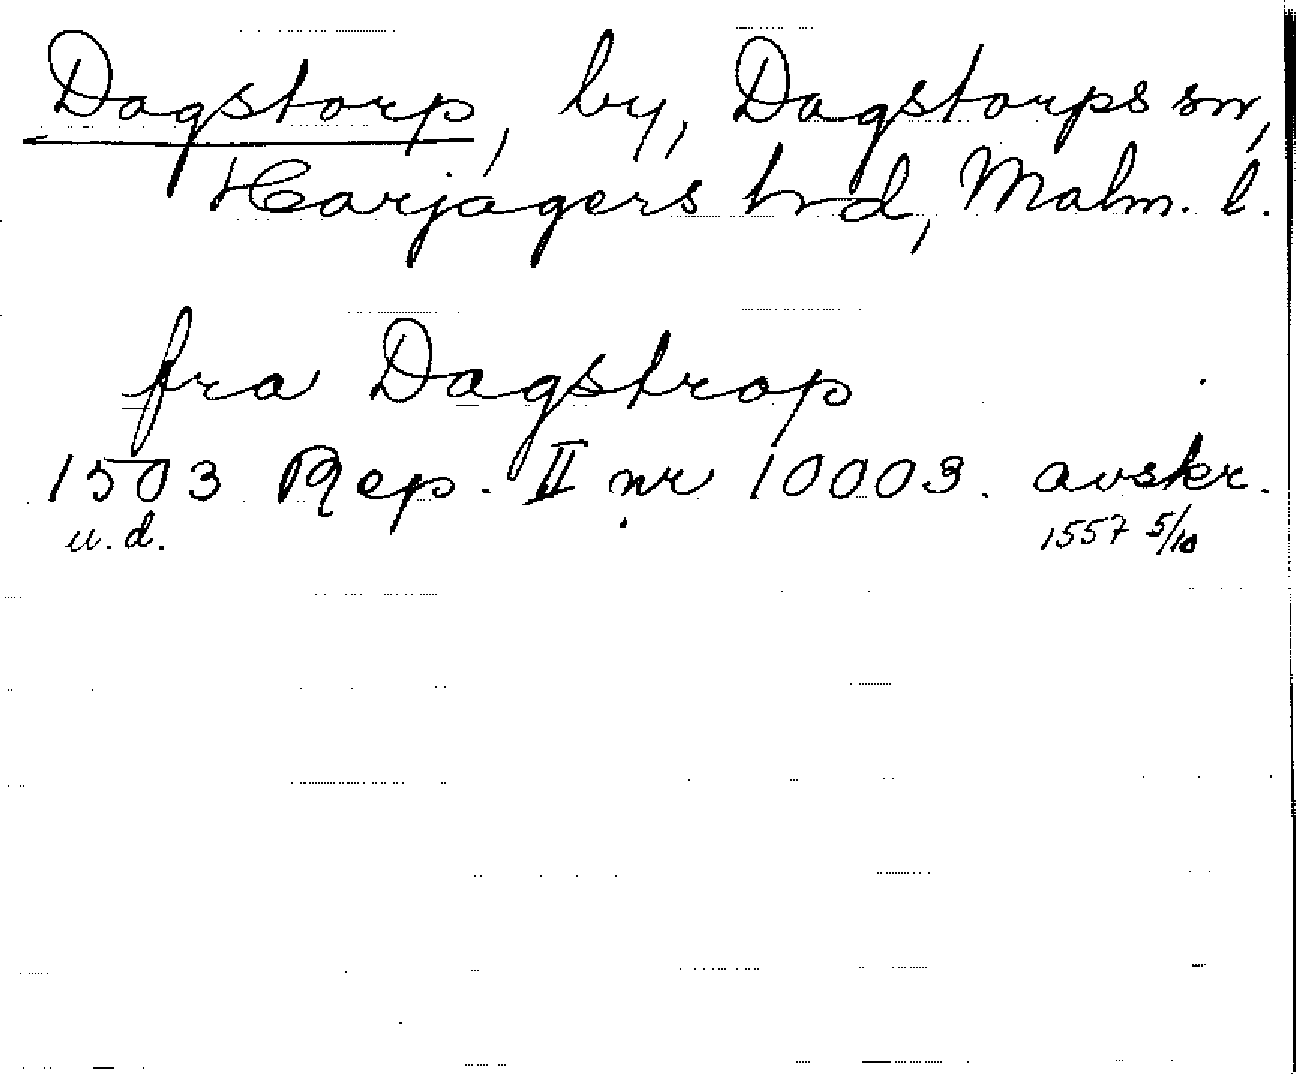 Dagstorp, by, Dagstorps sn,
Harjagers hrd, Malm. l.
fra Dagstrop
1503 Rep. II nr 10003. avskr.
u. d. 1557 5/10